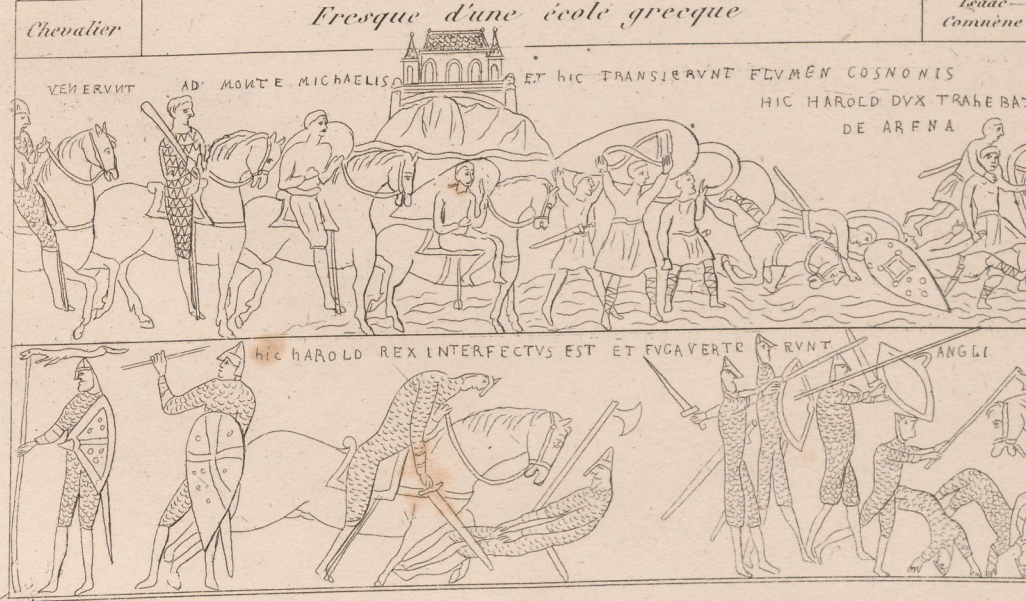 Chevalier
Fresque d'une école grecque
Isaac
Comnène
VENERVNT AD MONTE MICHAELIS ET hIC TRANSIERVNT FLVMEN COSNONIS
HIC HAROLD DVX TRAHEBAT
DE ARENA
hic hAROLD REX INTERFECTVS EST ET FVGAVERTE RVNT ANGLI